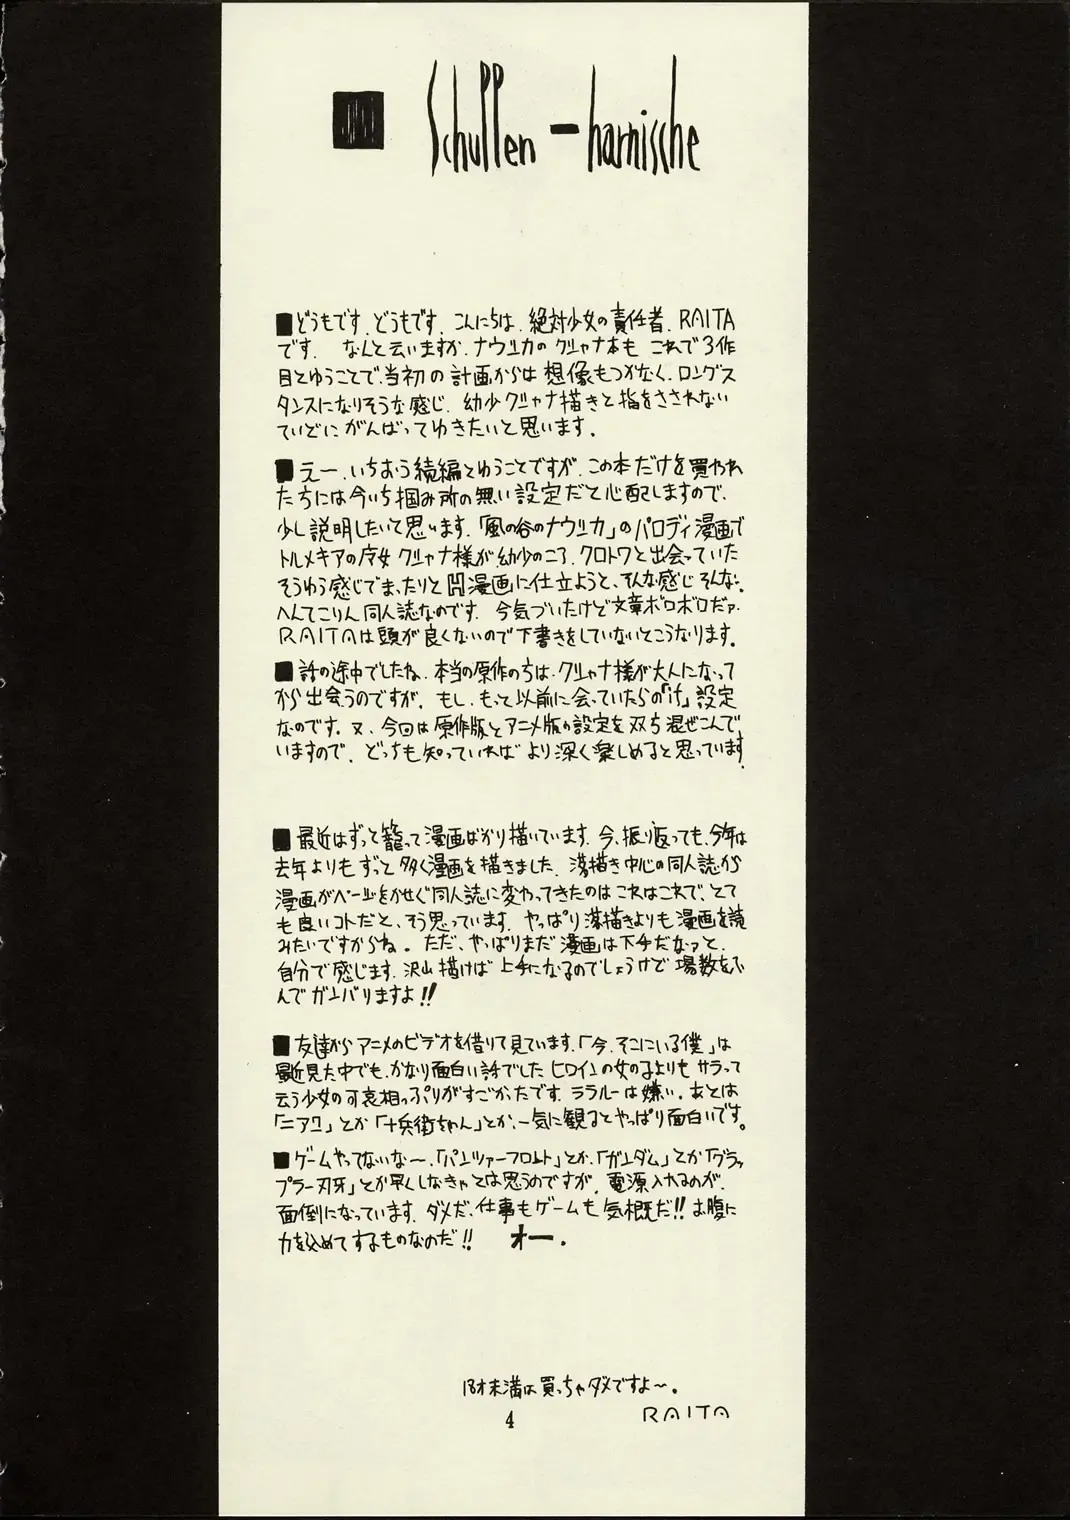 ■ Schuppen-harnische
■どうもです、どうもです。こんにちは、絶対少女の責任者、RAITA
です。なんと云いますか、ナウシカのクシャナ本も これで3作
目とゆうことで、当初の計画からは想像もつかなく、ロングス
タンスになりそうな感じ、幼少クシャナ描きと指をさされない
ていどにがんばってゆきたいと思います。
■えー、いちおう続編とゆうことですが、この本だけを買われ
たちには今いち掴み所の無い設定だと心配しますので、
少し説明したいと思います。「風の谷のナウシカ」のパロディ漫画で
トルメキアの皇女クシャナ様が幼少のころ、クロトワと出会っていた
そうゆう感じでまったりとH漫画に仕立ようと、そんな感じそんな。
へんてこりん同人誌なのです。今気づいたけど文章ボロボロだァ。
RAITAは頭が良くないので下書きをしていないとこうなります。
■話の途中でしたね、本当の原作のちは、クシャナ様が大人になって
から出会うのですが、もし、もっと以前に会っていたらの「if」設定
なのです。又、今回は原作版とアニメ版の設定を双ち混ぜこんで
いますので、どっちも知っていればより深く楽しめると思っています。
■最近はずっと籠って漫画ばかり描いています。今、振り返っても、今年は
去年よりもずっと多く漫画を描きました。落描き中心の同人誌から
漫画がページをかせぐ同人誌に変わってきたのはこれはこれで、とて
も良いコトだと、そう思っています。やっぱり落描きよりも漫画を読
みたいですからね。ただ、やっぱりまだ漫画は下手だなァと、
自分で感じます。沢山描けば上手になるのでしょうけど場数をふ
んでガンバリますよ!!
■友達からアニメのビデオを借りて見ています。「今、そこにいる僕」は
最近見た中でも、かなり面白い話でした ヒロインの女の子よりも サラって
云う少女の可哀相っぷりがすごかったです。ララルーは嫌い。あとは
「ニア7」とか「十兵衛ちゃん」とか、一気に観るとやっぱり面白いです。
■ゲームやってないな〜、「パンツァーフロント」とか、「ガンダム」とか「グラッ
プラー刃牙」とか早くしなきゃとは思うのですが、電源入れるのが、
面倒になっています。ダメだ、仕事もゲームも気概だ!!お腹に
力を込めてするものなのだ!! オー。
18才未満は買っちゃダメですよ〜。
4
RAITA